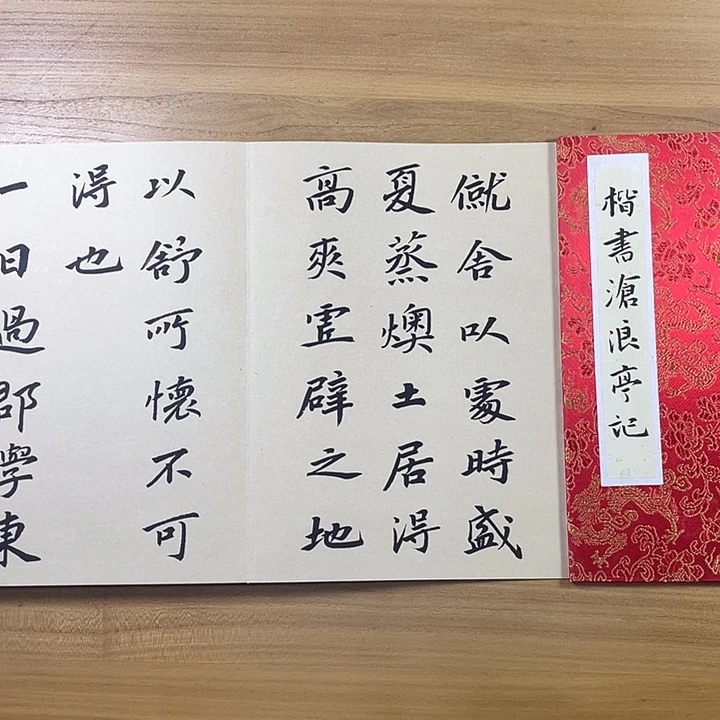 楷書滄浪亭記
僦舍以處時盛
夏蒸燠土居得
高爽虛辟之地
以舒所懷不可
得也
一日過郡學東